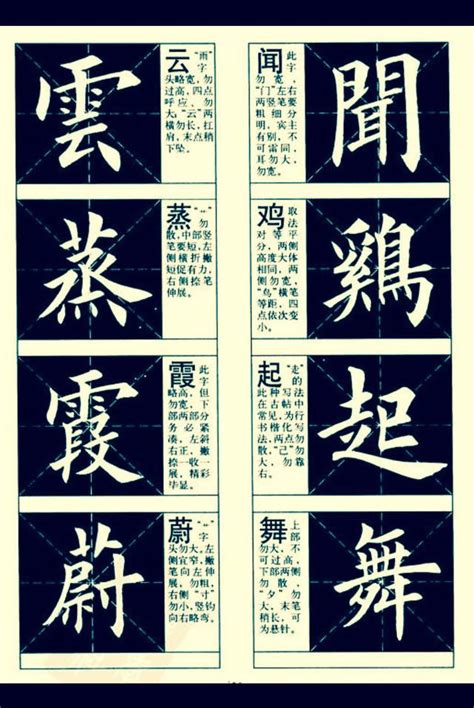 雲
云 "雨"字
头略宽，勿
过高，四点
呼应、勿
大。"云"两
横勿长，扛
肩，末点稍
下坠。
蒸
蒸 "艹"勿
散，中部竖
笔要短，左
侧横折撇
短促有力，
右侧捺笔
伸展。
霞
霞 此字
略高，但
勿宽，下
部两部分
务必紧
凑，左斜
右正，撇
捺一收一
展，精彩
毕显。
蔚
蔚 "艹"字
头勿大，左
侧宜窄，撇
笔向左伸
展，勿粗；
右侧"寸"
勿小，竖钩
向右略弯。
聞
闻 此字
勿宽，
"门"左右
两竖笔要
粗细分
明，宾主
有别，不
可雷同，
耳勿大，
勿宽。
鷄
鸡 取法
对等平
分，两侧
高度大体
相同，两
侧勿宽，
"鸟"横笔
等距，四
点依次变
小。
起
起 "走"的
此种写法
在古帖中
常见，为行
书楷化写
法，两点勿
散，"己"勿
大，勿靠
右。
舞
舞 上部
勿大，不
可过高，
下部两侧
勿散，
"夕"勿
大，末笔
稍长，可
为悬针。